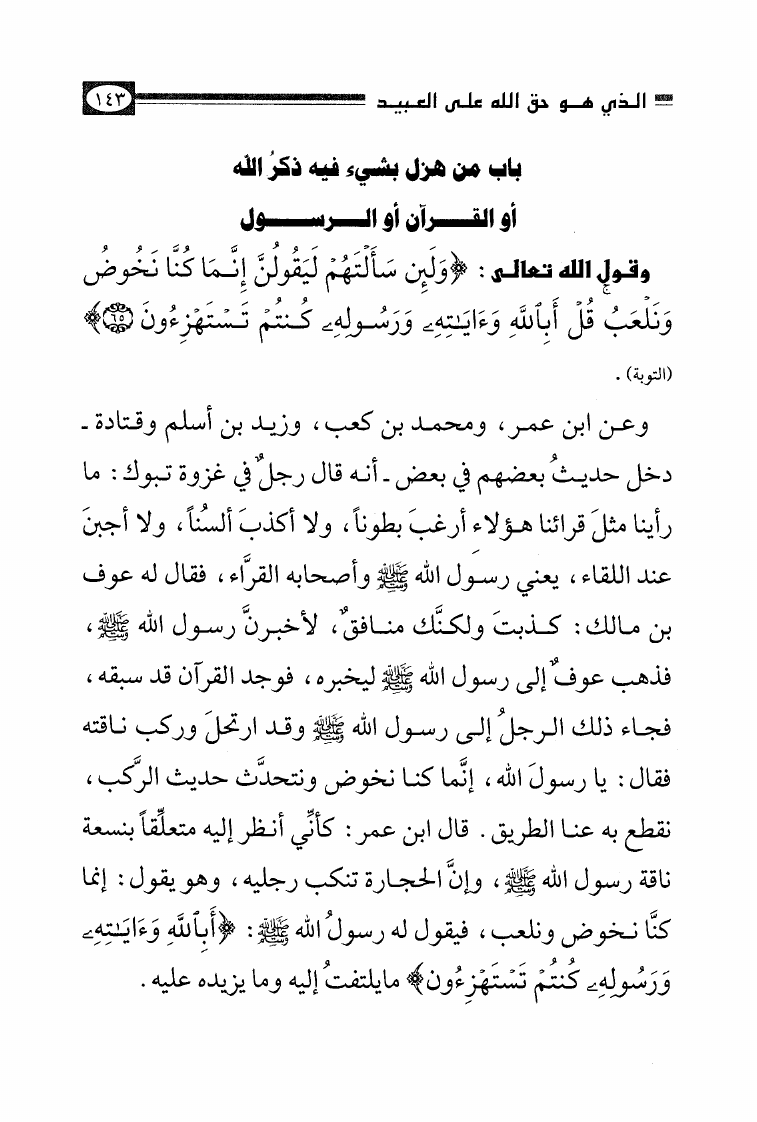 الذي هو حق الله على العبيد ١٤٣
باب من هزل بشيء فيه ذكرُ الله
أو القرآن أو الرسول
وقول الله تعالى : ﴿وَلَئِن سَأَلْتَهُمْ لَيَقُولُنَّ إِنَّمَا كُنَّا نَخُوضُ
وَنَلْعَبُ ۚ قُلْ أَبِٱللَّهِ وَءَايَـٰتِهِۦ وَرَسُولِهِۦ كُنتُمْ تَسْتَهْزِءُونَ ٦٥﴾
(التوبة) .
وعن ابن عمر ، ومحمد بن كعب ، وزيد بن أسلم وقتادة ـ
دخل حديثُ بعضهم في بعض ـ أنه قال رجلٌ في غزوة تبوك : ما
رأينا مثلَ قرائنا هؤلاء أرغبَ بطوناً ، ولا أكذبَ ألسُناً ، ولا أجبنَ
عند اللقاء ، يعني رسول الله ﷺ وأصحابه القرَّاء ، فقال له عوف
بن مالك : كذبتَ ولكنَّك منافقٌ ، لأخبرنَّ رسول الله ﷺ ،
فذهب عوفٌ إلى رسول الله ﷺ ليخبره ، فوجد القرآن قد سبقه ،
فجاء ذلك الرجلُ إلى رسول الله ﷺ وقد ارتحلَ وركب ناقته
فقال : يا رسولَ الله ، إنَّما كنا نخوض ونتحدَّث حديث الرَّكب ،
نقطع به عنا الطريق . قال ابن عمر : كأنِّي أنظر إليه متعلِّقاً بنسعة
ناقة رسول الله ﷺ ، وإنَّ الحجارة تنكب رجليه ، وهو يقول : إنما
كنَّا نخوض ونلعب ، فيقول له رسولُ الله ﷺ : ﴿أَبِٱللَّهِ وَءَايَـٰتِهِۦ
وَرَسُولِهِۦ كُنتُمْ تَسْتَهْزِءُونَ﴾ مايلتفتُ إليه وما يزيده عليه .